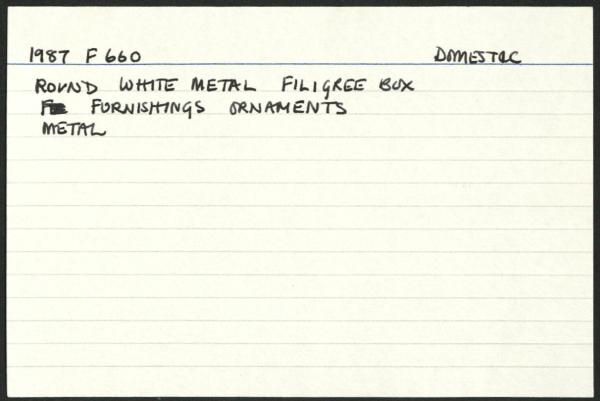 1987 F 660 DOMESTIC
ROUND WHITE METAL FILIGREE BOX
FURNISHINGS ORNAMENTS
METAL